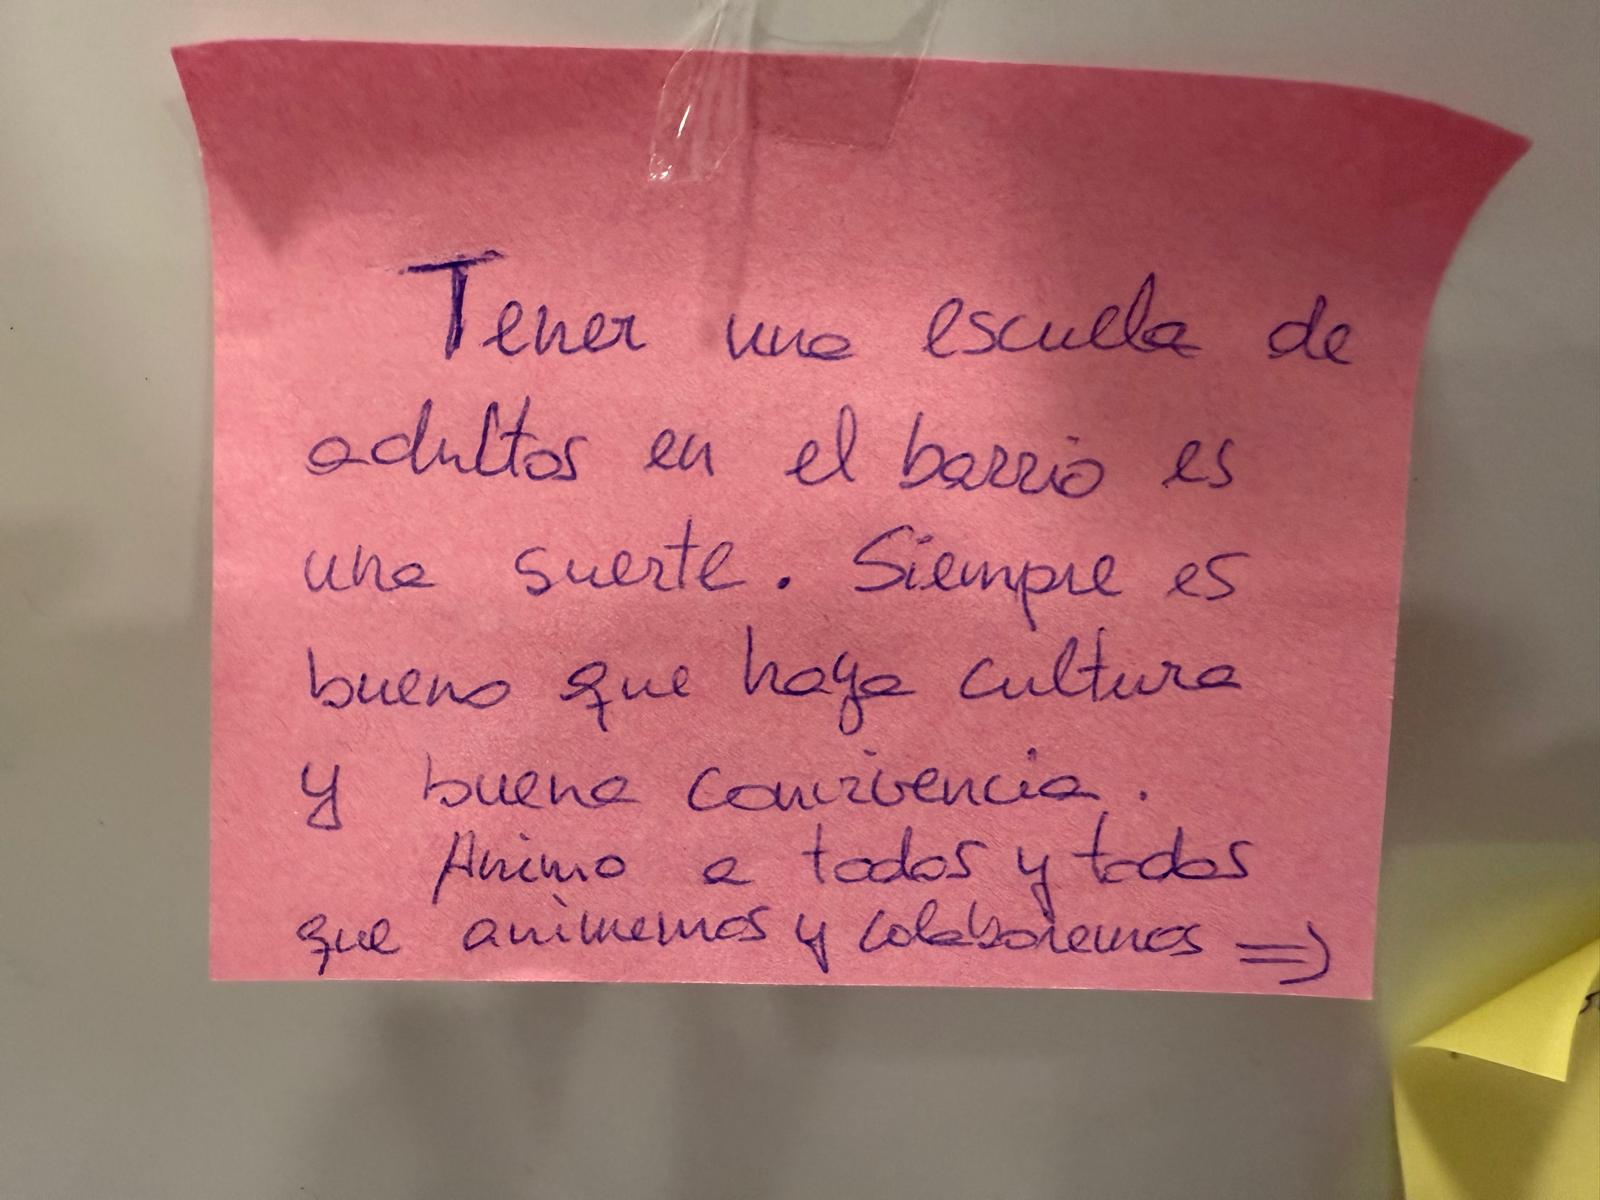 Tener una escuela de
adultos en el barrio es
una suerte. Siempre es
bueno que haya cultura
y buena convivencia.
Animo a todos y todas
que animemos y colaboremos =)